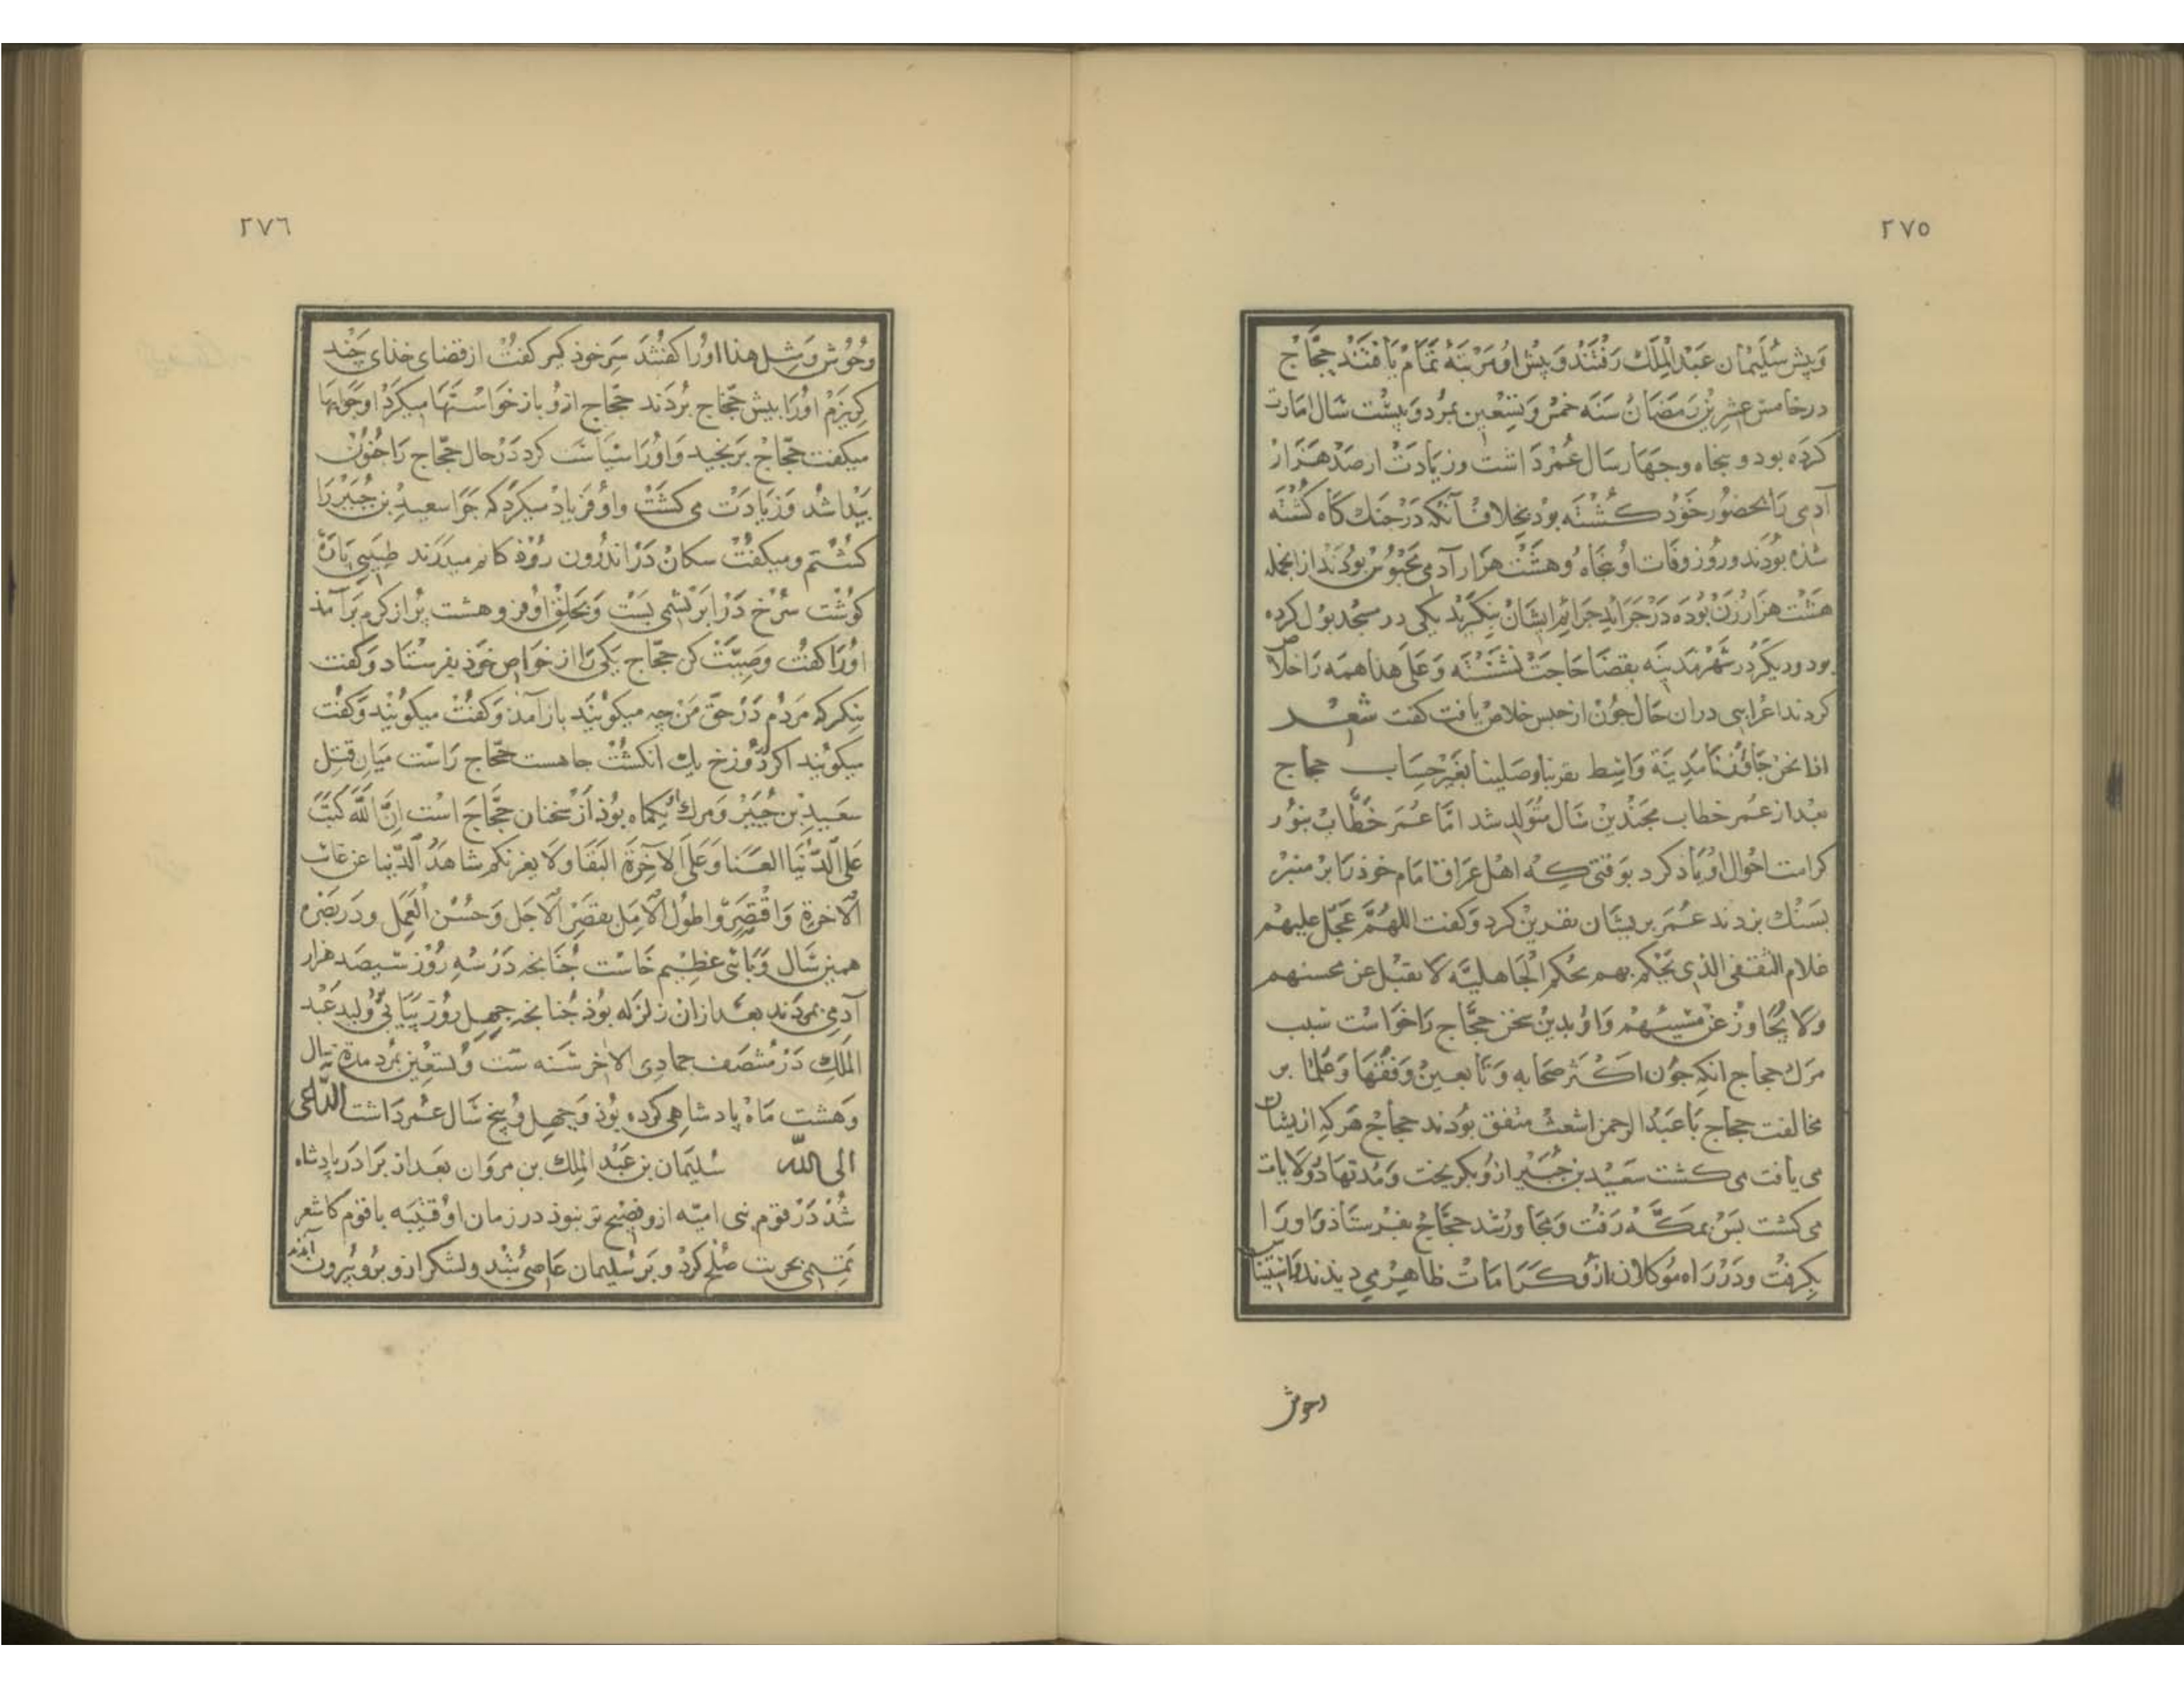 ٢٧٥
وپیش سُلیمان عبد الملک رفتند و پیش او مرتبه تمام یافتند حجّاج
در خامس عشرین رمضان سنه خمس و تسعین بمرد و بیست سال امارت
کرده بود و پنجاه و چهار سال عمر داشت و زیادت از صد هزار
آدمی را بحضور خود کشته بود بخلاف آنکه در جنک کاه کشته
شذه بودند و روز وفات او پنجاه و هشت هزار آدمی محبوس بودند از انجمله
هشت هزار زن بوده در جراید جرائم ایشان بنکرید یکی در مسجد بول کرده
بود و دیکر در شهر مدینه بقضا حاجت نشسته و علی هذا همه را خلاص
کردند اعرابی در ان حال چون از حبس خلاص یافت کفت شعر
اذا نحن جاوزنا مدینة واسط بغیر حساب حجاج
بعد از عمر خطاب بچندین سال متولد شد امّا عمر خطّاب بنور
کرامت احوال او یاذ کرد بوقتی که اهل عراق امام خوذ را بر منبر
بسنک بزدند عمر بریشان نفرین کرد و کفت اللهمّ عجّل علیهم
غلام الثقفی الذی یحکم بهم بحکم الجاهلیّه لا یقبل عن محسنهم
ولا یجاوز عن مسیئهم و او بدین سخن حجّاج را خواست سبب
مرک حجاج انکه چون اکثر صحابه و تابعین و فقها و علما بر
مخالفت حجاج با عبد الرحمن اشعث متفق بودند حجاج هر که ازیشان
می یافت می کشت سعید بن جُبیر ازو بکریخت و مدتها در ولایات
می کشت بس بمکّه رفت و مجاور شد حجّاج بفرستاذ و او را
بکرفت و در راه موکلان ازو کرامات ظاهر می دیدند
وحوش
٢٧٦
وحُوش و مثل هذا او را کفتند سر خوذ کیر کفت از قضای خذای چند
کریزم او را بیش حجّاج بردند حجّاج ازو باز خواستها میکرد او جوابها
میکفت حجّاج برنجید و او را سیاست کرد در حال حجّاج را جنون
بیدا شد و زیادت می کشت و او فریاد میکرد که چرا سعید بن جبیر را
کشتم و میکفت سکان در اندرون روذه کانم میدرند طبیبی پارۀ
کوشت سرخ در ابریشمی بست و بحلق او فرو هشت پر از کرم برآمذ
او را کفت وصیّت کن حجّاج یکی را از خواص خوذ بفرستاد و کفت
بنکر که مردم در حق من چه میکویند باز آمذ و کفت میکویند و کفت
میکویند اکر در دوزخ یک انکشت جا هست حجّاج راست میان قتل
سعید بن جبیر و مرک او یکماه بوذ از سخنان حجّاج است انّ اللّه کتب
علی الدّنیا الفنا و علی الآخرة البقا ولا یغرنکم شاهد الدّنیا عن غائب
الآخرة واقصروا طول الامل بقصر الاجل وحسن العمل و در بصره
همین سال وبائی عظیم خاست چنانجه در سه روز سیصد هزار
آدمی بمردند بعد ازان زلزله بوذ چنانجه چهل روز پیاپی ولید عبد
الملک در منتصف جمادی الاخر سنه ست و تسعین بمرد مدة نه سال
وهشت ماه پادشاهی کرده بوذ و چهل و پنج سال عمر داشت الدّاعی
الی اللّه سُلیمان بن عبد الملک بن مروان بعد از برادر پادشاه
شذ در قوم بنی امیّه ازو فصیح تر نبوذ در زمان او قتیبه با قوم کاشغر
بحرب صلح کرد و بر سلیمان عاصی شد و لشکر ازو برو بیرون آمدند